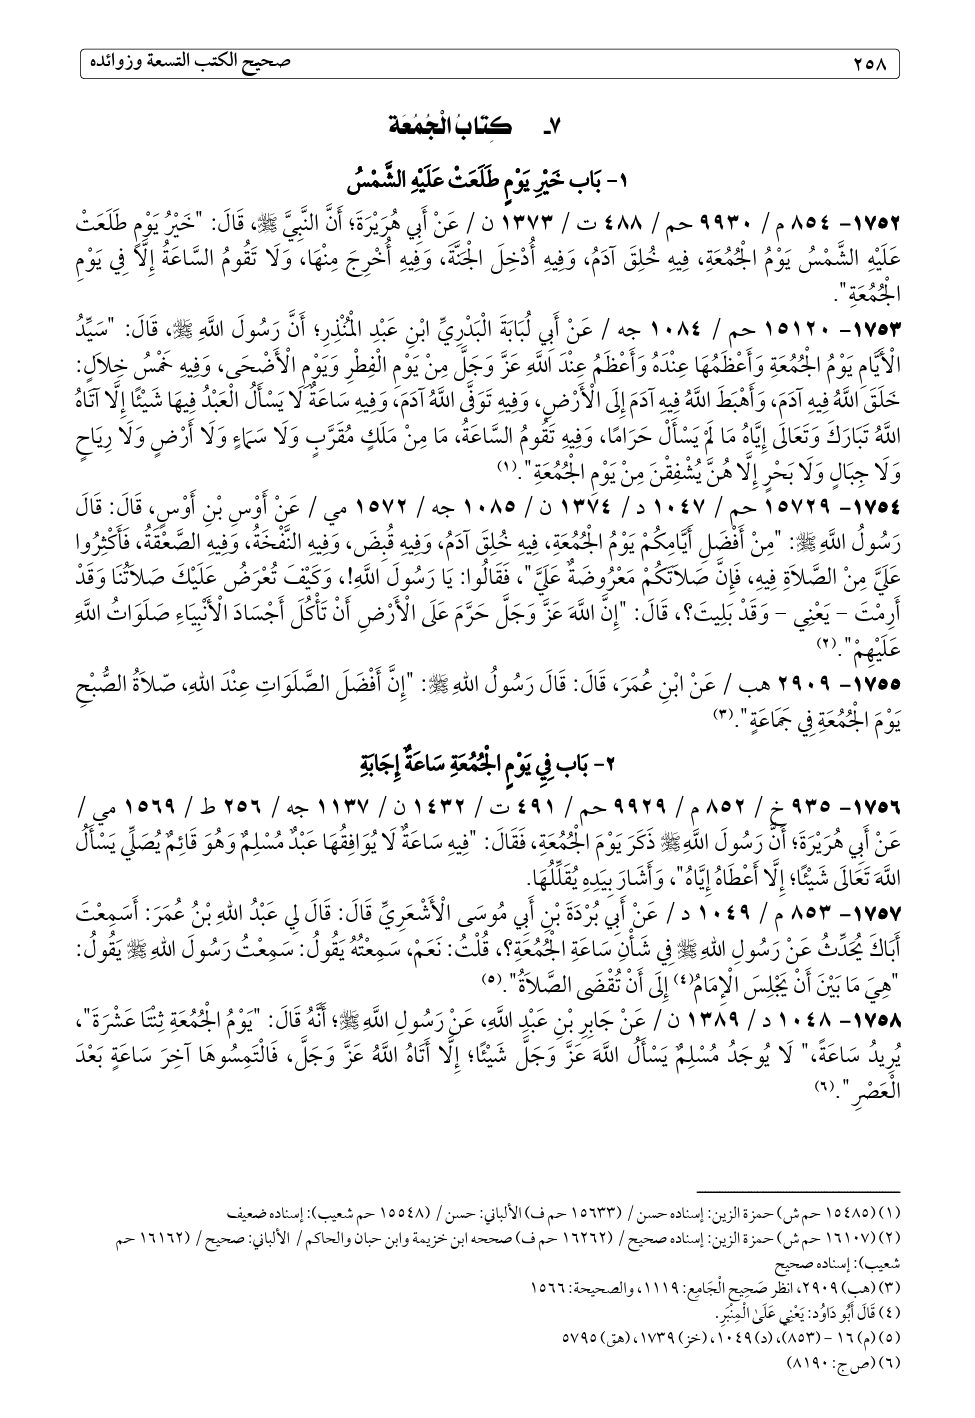 ٢٥٨ صحيح الكتب التسعة وزوائده
٧ـ كِتَابُ الْجُمُعَة
١- بَاب خَيْرِ يَوْمٍ طَلَعَتْ عَلَيْهِ الشَّمْسُ
١٧٥٢- ٨٥٤ م/ ٩٩٣٠ حم/ ٤٨٨ ت/ ١٣٧٣ ن/ عَنْ أَبِي هُرَيْرَةَ؛ أَنَّ النَّبِيَّ ﷺ، قَالَ: "خَيْرُ يَوْمٍ طَلَعَتْ
عَلَيْهِ الشَّمْسُ يَوْمُ الْجُمُعَةِ، فِيهِ خُلِقَ آدَمُ، وَفِيهِ أُدْخِلَ الجَنَّةَ، وَفِيهِ أُخْرِجَ مِنْهَا، وَلَا تَقُومُ السَّاعَةُ إِلَّا فِي يَوْمِ
الْجُمُعَةِ".
١٧٥٣- ١٥١٢٠ حم/ ١٠٨٤ جه/ عَنْ أَبِي لُبَابَةَ الْبَدْرِيِّ ابْنِ عَبْدِ الْمُنْذِرِ؛ أَنَّ رَسُولَ اللَّهِ ﷺ، قَالَ: "سَيِّدُ
الْأَيَّامِ يَوْمُ الْجُمُعَةِ وَأَعْظَمُهَا عِنْدَهُ وَأَعْظَمُ عِنْدَ اللَّهِ عَزَّ وَجَلَّ مِنْ يَوْمِ الْفِطْرِ وَيَوْمِ الْأَضْحَى، وَفِيهِ خَمْسُ خِلاَلٍ:
خَلَقَ اللَّهُ فِيهِ آدَمَ، وَأَهْبَطَ اللَّهُ فِيهِ آدَمَ إِلَى الْأَرْضِ، وَفِيهِ تَوَفَّى اللَّهُ آدَمَ، وَفِيهِ سَاعَةٌ لَا يَسْأَلُ الْعَبْدُ فِيهَا شَيْئًا إِلَّا آتَاهُ
اللَّهُ تَبَارَكَ وَتَعَالَى إِيَّاهُ مَا لَمْ يَسْأَلْ حَرَامًا، وَفِيهِ تَقُومُ السَّاعَةُ، مَا مِنْ مَلَكٍ مُقَرَّبٍ وَلَا سَمَاءٍ وَلَا أَرْضٍ وَلَا رِيَاحٍ
وَلَا جِبَالٍ وَلَا بَحْرٍ إِلَّا هُنَّ يُشْفِقْنَ مِنْ يَوْمِ الْجُمُعَةِ".(١)
١٧٥٤- ١٥٧٢٩ حم/ ١٠٤٧ د/ ١٣٧٤ ن/ ١٠٨٥ جه/ ١٥٧٢ مي/ عَنْ أَوْسِ بْنِ أَوْسٍ، قَالَ: قَالَ
رَسُولُ اللَّهِ ﷺ: "مِنْ أَفْضَلِ أَيَّامِكُمْ يَوْمُ الْجُمُعَةِ، فِيهِ خُلِقَ آدَمُ، وَفِيهِ قُبِضَ، وَفِيهِ النَّفْخَةُ، وَفِيهِ الصَّعْقَةُ، فَأَكْثِرُوا
عَلَيَّ مِنْ الصَّلاَةِ فِيهِ، فَإِنَّ صَلاَتَكُمْ مَعْرُوضَةٌ عَلَيَّ"، فَقَالُوا: يَا رَسُولَ اللَّهِ!، وَكَيْفَ تُعْرَضُ عَلَيْكَ صَلاَتُنَا وَقَدْ
أَرِمْتَ – يَعْنِي – وَقَدْ بَلِيتَ؟، قَالَ: "إِنَّ اللَّهَ عَزَّ وَجَلَّ حَرَّمَ عَلَى الْأَرْضِ أَنْ تَأْكُلَ أَجْسَادَ الْأَنْبِيَاءِ صَلَوَاتُ اللَّهِ
عَلَيْهِمْ".(٢)
١٧٥٥- ٢٩٠٩ هب/ عَنْ ابْنِ عُمَرَ، قَالَ: قَالَ رَسُولُ اللهِ ﷺ: "إِنَّ أَفْضَلَ الصَّلَوَاتِ عِنْدَ اللهِ، صّلاَةُ الصُّبْحِ
يَوْمَ الْجُمُعَةِ فِي جَمَاعَةٍ".(٣)
٢- بَاب فِي يَوْمِ الْجُمُعَةِ سَاعَةٌ إِجَابَةِ
١٧٥٦- ٩٣٥ خ/ ٨٥٢ م/ ٩٩٢٩ حم/ ٤٩١ ت/ ١٤٣٢ ن/ ١١٣٧ جه/ ٢٥٦ ط/ ١٥٦٩ مي/
عَنْ أَبِي هُرَيْرَةَ؛ أَنَّ رَسُولَ اللَّهِ ﷺ ذَكَرَ يَوْمَ الْجُمُعَةِ، فَقَالَ: "فِيهِ سَاعَةٌ لَا يُوَافِقُهَا عَبْدٌ مُسْلِمٌ وَهُوَ قَائِمٌ يُصَلِّي يَسْأَلُ
اللَّهَ تَعَالَى شَيْئًا؛ إِلَّا أَعْطَاهُ إِيَّاهُ"، وَأَشَارَ بِيَدِهِ يُقَلِّلُهَا.
١٧٥٧- ٨٥٣ م/ ١٠٤٩ د/ عَنْ أَبِي بُرْدَةَ بْنِ أَبِي مُوسَى الْأَشْعَرِيِّ قَالَ: قَالَ لِي عَبْدُ اللهِ بْنُ عُمَرَ: أَسَمِعْتَ
أَبَاكَ يُحَدِّثُ عَنْ رَسُولِ اللهِ ﷺ فِي شَأْنِ سَاعَةِ الْجُمُعَةِ؟، قُلْتُ: نَعَمْ، سَمِعْتُهُ يَقُولُ: سَمِعْتُ رَسُولَ اللهِ ﷺ يَقُولُ:
"هِيَ مَا بَيْنَ أَنْ يَجْلِسَ الْإِمَامُ(٤) إِلَى أَنْ تُقْضَى الصَّلاَةُ".(٥)
١٧٥٨- ١٠٤٨ د/ ١٣٨٩ ن/ عَنْ جَابِرِ بْنِ عَبْدِ اللَّهِ، عَنْ رَسُولِ اللَّهِ ﷺ؛ أَنَّهُ قَالَ: "يَوْمُ الْجُمُعَةِ ثِنْتَا عَشْرَةَ"،
يُرِيدُ سَاعَةً،" لَا يُوجَدُ مُسْلِمٌ يَسْأَلُ اللَّهَ عَزَّ وَجَلَّ شَيْئًا؛ إِلَّا أَتَاهُ اللَّهُ عَزَّ وَجَلَّ، فَالْتَمِسُوهَا آخِرَ سَاعَةٍ بَعْدَ
الْعَصْرِ".(٦)
(١) (١٥٤٨٥ حم ش) حمزة الزين: إسناده حسن/ (١٥٦٣٣ حم ف) الألباني: حسن/ (١٥٥٤٨ حم شعيب): إسناده ضعيف
(٢) (١٦١٠٧ حم ش) حمزة الزين: إسناده صحيح/ (١٦٢٦٢ حم ف) صححه ابن خزيمة وابن حبان والحاكم/ الألباني: صحيح/ (١٦١٦٢ حم
شعيب): إسناده صحيح
(٣) (هب) ٢٩٠٩، انظر صَحِيح الْجَامِع: ١١١٩، والصحيحة: ١٥٦٦
(٤) قَالَ أَبُو دَاوُد: يَعْنِي عَلَى الْمِنْبَرِ.
(٥) (م) ١٦ – (٨٥٣)، (د) ١٠٤٩، (خز) ١٧٣٩، (هق) ٥٧٩٥
(٦) (ص ج: ٨١٩٠)